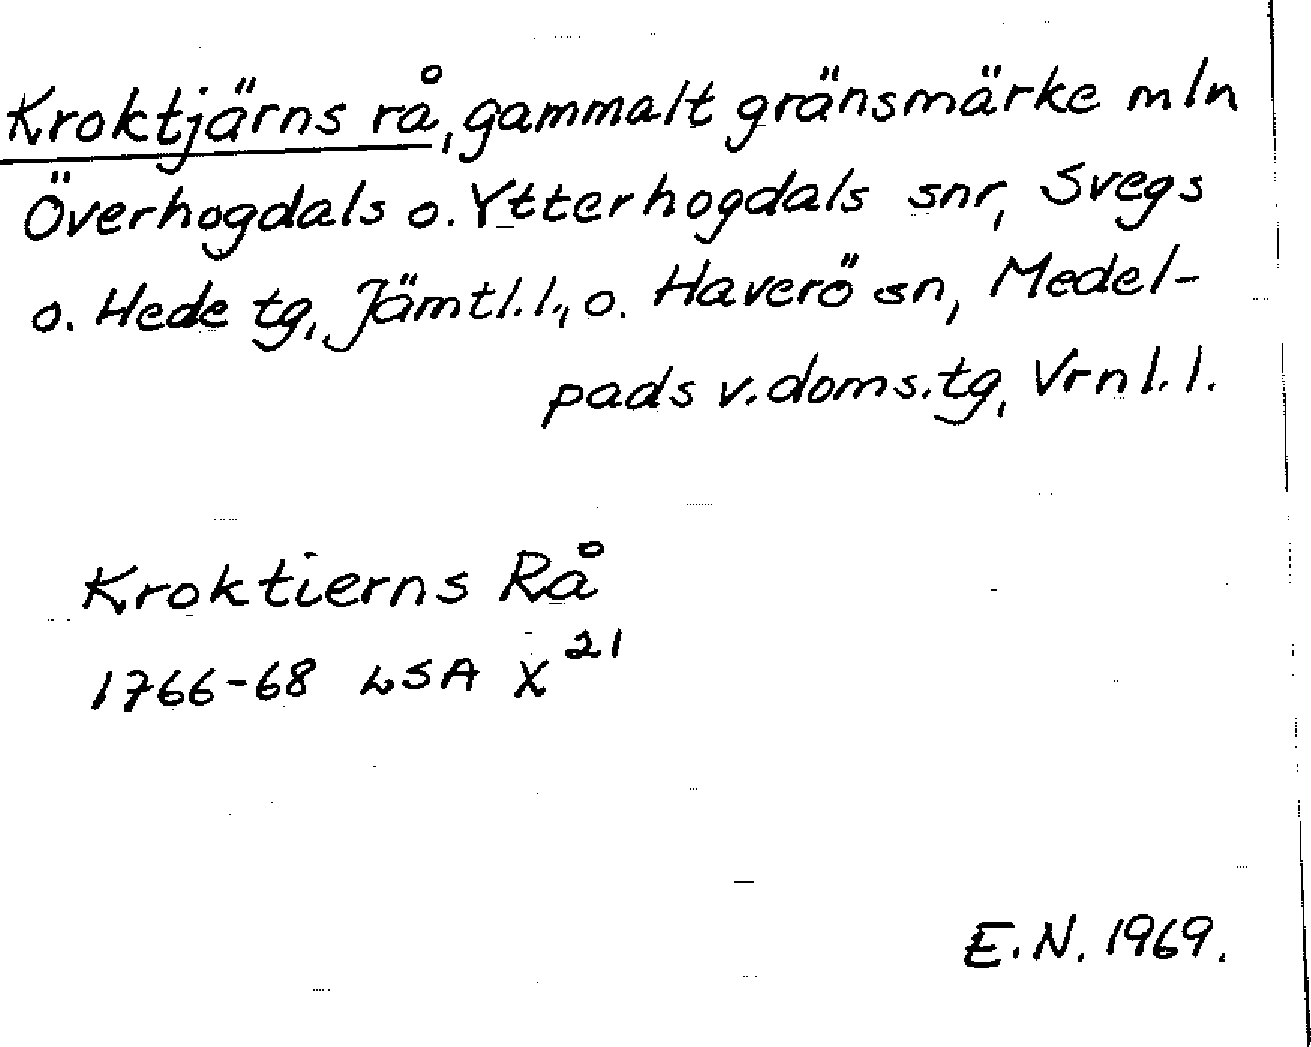 Kroktjärns rå, gammalt gränsmärke mln
Överhogdals o. Ytterhogdals snr, Svegs
o. Hede tg, Jämtl.l., o. Haverö sn, Medel-
pads v. doms.tg, Vrnl.l.
Kroktierns Rå
1766-68 LSA X²¹
E.N. 1969.